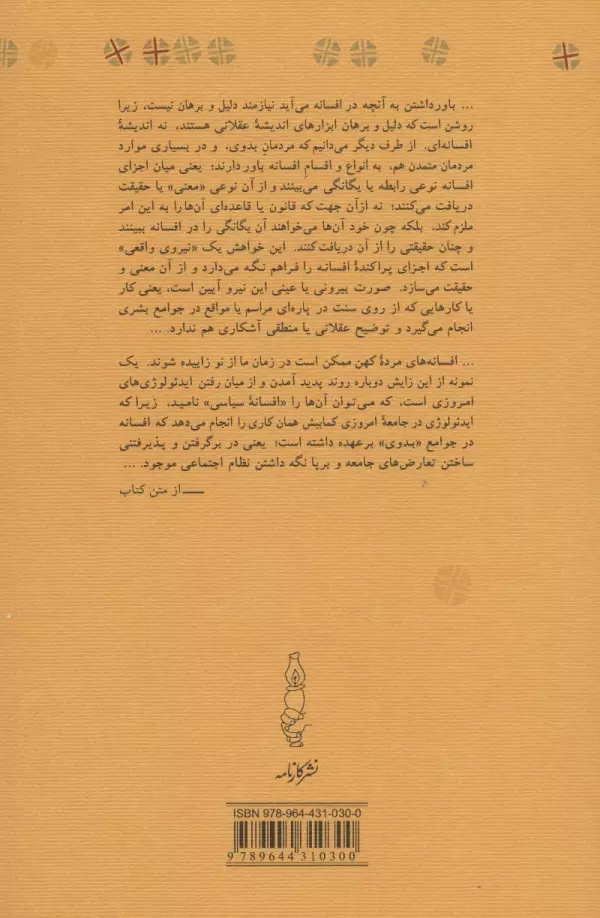 ... باورداشتن به آنچه در افسانه می‌آید نیازمند دلیل و برهان نیست، زیرا
روشن است که دلیل و برهان ابزارهای اندیشهٔ عقلانی هستند، نه اندیشهٔ
افسانه‌ای. از طرف دیگر می‌دانیم که مردمانِ بدوی، و در بسیاری موارد
مردمان متمدن هم، به انواع و اقسامِ افسانه باور دارند؛ یعنی میان اجزای
افسانه نوعی رابطه یا یگانگی می‌بینند و از آن نوعی «معنی» یا حقیقت
دریافت می‌کنند؛ نه ازآن جهت که قانون یا قاعده‌ای آن‌ها را به این امر
ملزم کند، بلکه چون خود آن‌ها می‌خواهند آن یگانگی را در افسانه ببینند
و چنان حقیقتی را از آن دریافت کنند. این خواهش یک «نیروی واقعی»
است که اجزای پراکندهٔ افسانه را فراهم نگه می‌دارد و از آن معنی و
حقیقت می‌سازد. صورت بیرونی یا عینی این نیرو آیین است، یعنی کار
یا کارهایی که از روی سنت در پاره‌ای مراسم یا مواقع در جوامع بشری
انجام می‌گیرد و توضیح عقلانی یا منطقی آشکاری هم ندارد. ...
... افسانه‌های مردهٔ کهن ممکن است در زمان ما از نو زاییده شوند. یک
نمونه از این زایش دوباره روند پدید آمدن و از میان رفتن ایدئولوژی‌های
امروزی است، که می‌توان آن‌ها را «افسانهٔ سیاسی» نامید، زیرا که
ایدئولوژی در جامعهٔ امروزی کمابیش همان کاری را انجام می‌دهد که افسانه
در جوامع «بدوی» برعهده داشته است؛ یعنی در برگرفتن و پذیرفتنی
ساختن تعارض‌های جامعه و برپا نگه داشتن نظام اجتماعی موجود. ...
ــــ از متن کتاب
نشر کارنامه
ISBN 978-964-431-030-0
9 789644 310300